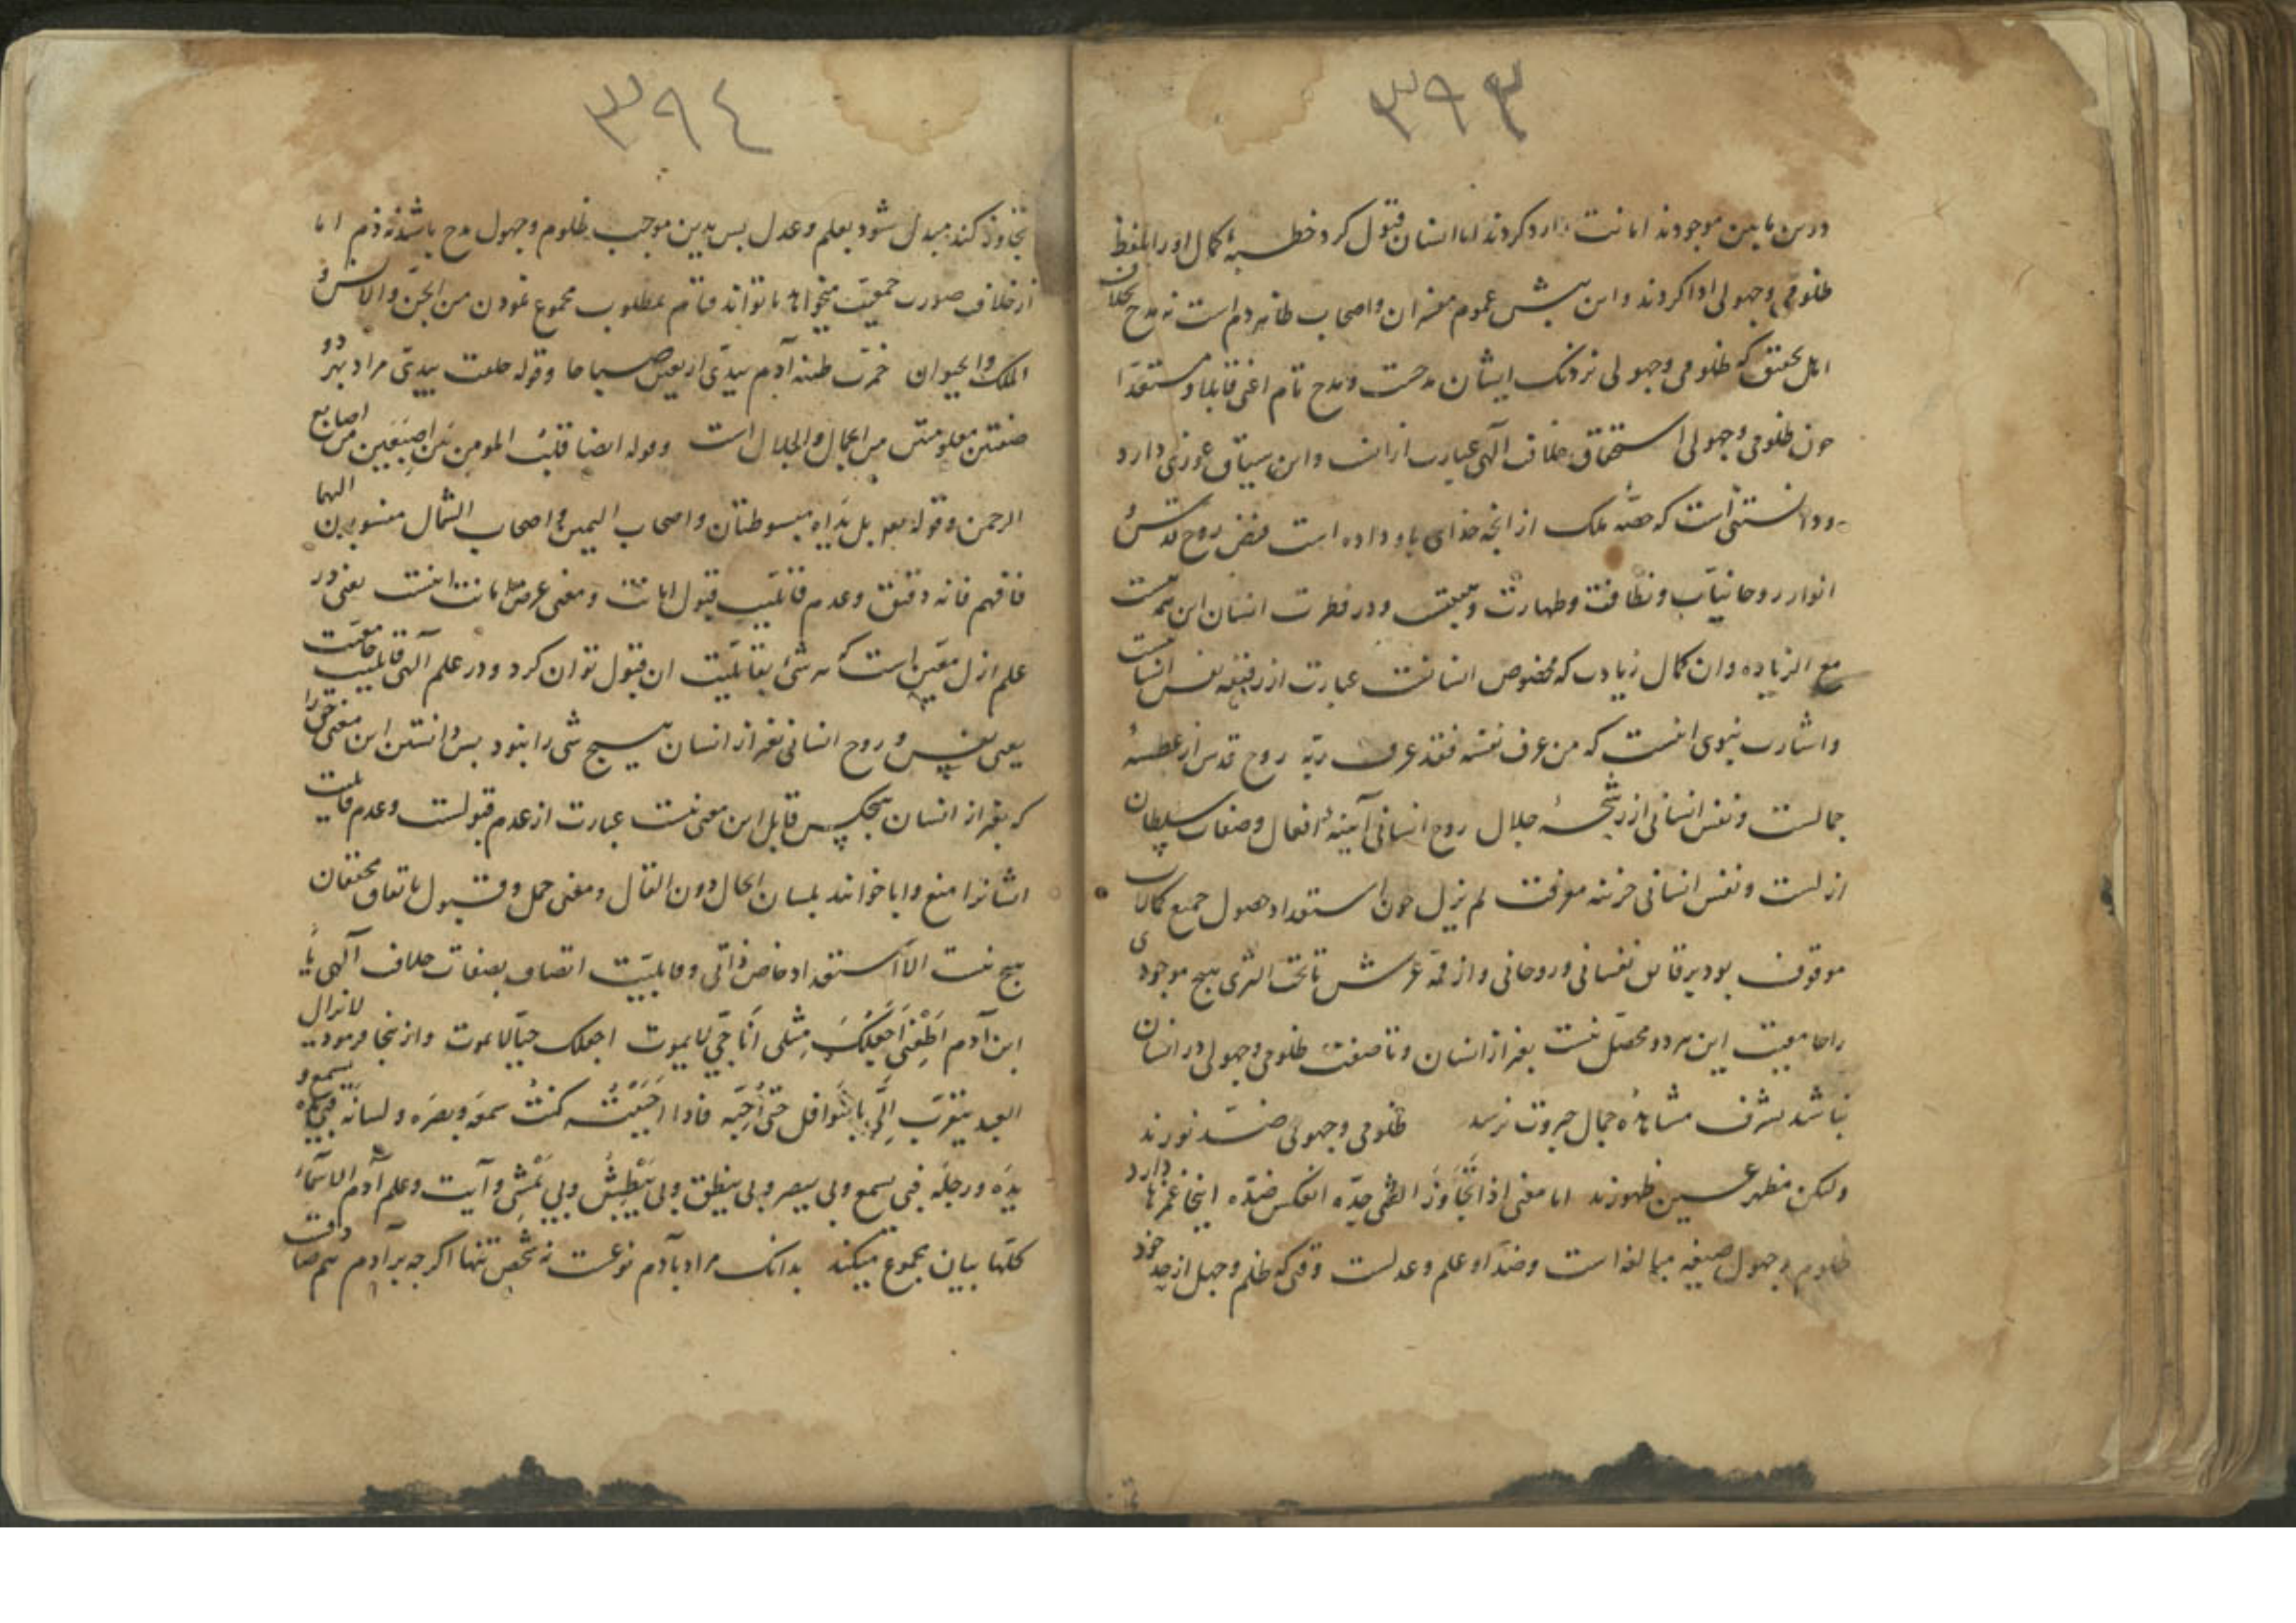 ۳۹۳
درین مابین موجودند امانت را رد کردند اما انسان قبول کرد خطبهٔ کمال او را بلفظ
ظلومی و جهولی ادا کردند و این پیش عموم مفسران و اصحاب ظاهر ذم است نه مدح بخلاف
اهل تحقیق که ظلومی و جهولی نزدیک ایشان مدحست و مدح تام اعنی قابلا و مستعدا
چون ظلومی و جهولی استحقاق خلافت الهی عبارت از آنست و این سیاق غوری دارد
و دانستنی است که حصّه ملک از آنچه خدای باو داده است فیض روح قدس
انوار روحانیات و نظافت و طهارت و در فطرت انسان این همه هست
مع الزیاده و ان کمال زیادت که مخصوص انسانست عبارت از رقیقه نفس انسانیست
و اشارت نبوی اینست که من عرف نفسه فقد عرف ربّه روح قدس از عطسهٔ
جمالست و نفس انسانی از رشحهٔ جلال روح انسانی آیینهٔ افعال و صفات سلطان
ازلست و نفس انسانی خزینه معرفت لم یزل چون استعداد حصول جمیع کمالات
موقوف بود بر قایق نفسانی و روحانی و از قمّه عرش تا تحت الثری هیچ موجودی
را جامعیت این هر دو محصّل نیست بغیر از انسان و تا صفت ظلومی و جهولی در انسان
نباشد بشرف مشاهده جمال جبروت نرسد ظلومی و جهولی ضدّ نورند
ولیکن مظهر عین ظهورند اما معنی اذا تجاوز الشی حدّه انعکس ضدّه اینجا غمزها دارد
ظلوم و جهول صیغه مبالغه است و ضدّ او علم و عدلست وقتی که ظلم و جهل از حد خود
۳۹٤
تجاوز کند مبدل شود بعلم و عدل پس بدین موجب ظلوم و جهول مدح باشد نه ذم اما
از خلافت صورت جمعیّت میخواهد تا تواند قیام بمطلوب مجموع نمودن من الجن و الانس و
الملک و الحیوان خمّرت طینه آدم بیدیّ اربعین صباحا و قوله خلقت بیدیّ مراد بهر دو
صفتین معلومتین من الجمال و الجلال است و قوله ایضا قلبُ المومن بین اصبعین من اصابع
الرحمن و قوله بل یداه مبسوطتان و اصحاب الیمین و اصحاب الشمال منسوبین الیها
فافهم فانه دقیق و عدم قابلیت قبول امانت و معنی عرض امانت اینست یعنی در
علم ازل معیّن است که هر شیٔ بقابلیّت ان قبول توان کرد و در علم الهی قابلیت جامعیت
یعنی نفس و روح انسانی بغیر از انسان هیچ شی را نبود پس دانستن این معنی
که بغیر از انسان هیچکس قابل این معنی نیست عبارت از عدم قبولست و عدم قابلیت
ایشانرا منع و ابا خوانند بلسان الحال دون القال و معنی حمل و قبول باتفاق محققان
هیچ نیست الّا استعداد خاص ذاتی و قابلیّت اتصاف بصفات خلافت الهی یا
ابن آدم اَطِعْنی اَجعَلکَ مِثلی اَنا حیّ لا یموت اجعلک حیّا لا یموت و از ینجا فرمود لا یزال
العبد یتقرّب الیّ بالنّوافل حتی اُحِبّه فاذا احببتُه کنتُ سمعَه و بصرَه و لسانَه
یدَه و رجلَه فبی یسمع و بی یبصر و بی ینطق و بی یَبْطِشُ و بی یَمْشی و آیت و علّم آدم الاسماءَ
کلّها بیان مجموع میکند بدانک مراد بآدم نوعست نه شخص تنها اگرچه بر آدم هم صادقست